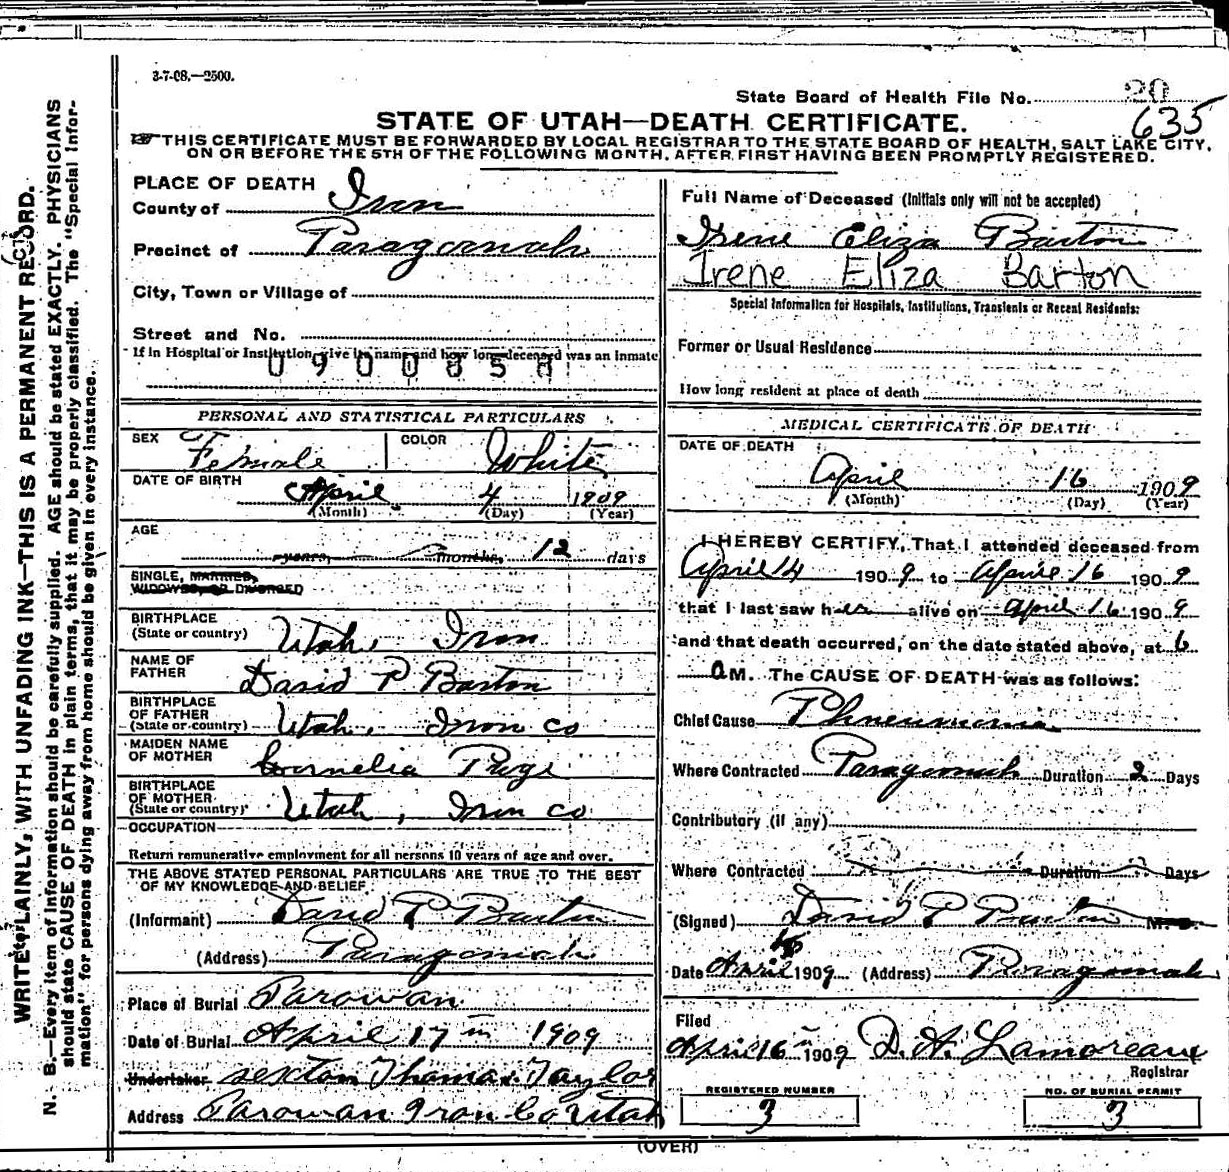 3-7-08.—2500.
State Board of Health File No. 20
635
STATE OF UTAH—DEATH CERTIFICATE.
THIS CERTIFICATE MUST BE FORWARDED BY LOCAL REGISTRAR TO THE STATE BOARD OF HEALTH, SALT LAKE CITY,
ON OR BEFORE THE 5TH OF THE FOLLOWING MONTH, AFTER FIRST HAVING BEEN PROMPTLY REGISTERED.
WRITE PLAINLY, WITH UNFADING INK—THIS IS A PERMANENT RECORD.
N. B.—Every item of information should be carefully supplied. AGE should be stated EXACTLY. PHYSICIANS
should state CAUSE OF DEATH in plain terms, that it may be properly classified. The "Special Infor-
mation" for persons dying away from home should be given in every instance.
PLACE OF DEATH
County of Iron
Precinct of Paragoonah
City, Town or Village of
Street and No.
If in Hospital or Institution, give its name and how long deceased was an inmate
PERSONAL AND STATISTICAL PARTICULARS
SEX Female COLOR White
DATE OF BIRTH April 4 1909
(Month) (Day) (Year)
AGE
years, months, 12 days
SINGLE, MARRIED,
WIDOWED, OR DIVORCED
BIRTHPLACE
(State or country) Utah, Iron
NAME OF
FATHER David P Barton
BIRTHPLACE
OF FATHER
(State or country) Utah, Iron co
MAIDEN NAME
OF MOTHER Cornelia Page
BIRTHPLACE
OF MOTHER
(State or country) Utah, Iron co
OCCUPATION
Return remunerative employment for all persons 10 years of age and over.
THE ABOVE STATED PERSONAL PARTICULARS ARE TRUE TO THE BEST
OF MY KNOWLEDGE AND BELIEF.
(Informant) David P Barton
(Address) Paragoonah
Place of Burial Parowan
Date of Burial April 17 1909
Undertaker sexton Thomas Taylor
Address Parowan Iron Co Utah
Full Name of Deceased (Initials only will not be accepted)
Irene Eliza Barton
Irene Eliza Barton
Special Information for Hospitals, Institutions, Transients or Recent Residents:
Former or Usual Residence
How long resident at place of death
MEDICAL CERTIFICATE OF DEATH
DATE OF DEATH
April 16 1909
(Month) (Day) (Year)
I HEREBY CERTIFY, That I attended deceased from
April 14 1909 to April 16 1909
that I last saw her alive on April 16 1909
and that death occurred, on the date stated above, at 6
a M. The CAUSE OF DEATH was as follows:
Chief Cause Phneumonia
Where Contracted Paragoonah Duration 2 Days
Contributory (if any)
Where Contracted Duration Days
(Signed) David P Barton M. D.
Date April 16 1909 (Address) Paragoonah
Filed
April 16 1909 D. A. Lamoreaux
Registrar
REGISTERED NUMBER
3
NO. OF BURIAL PERMIT
3
(OVER)